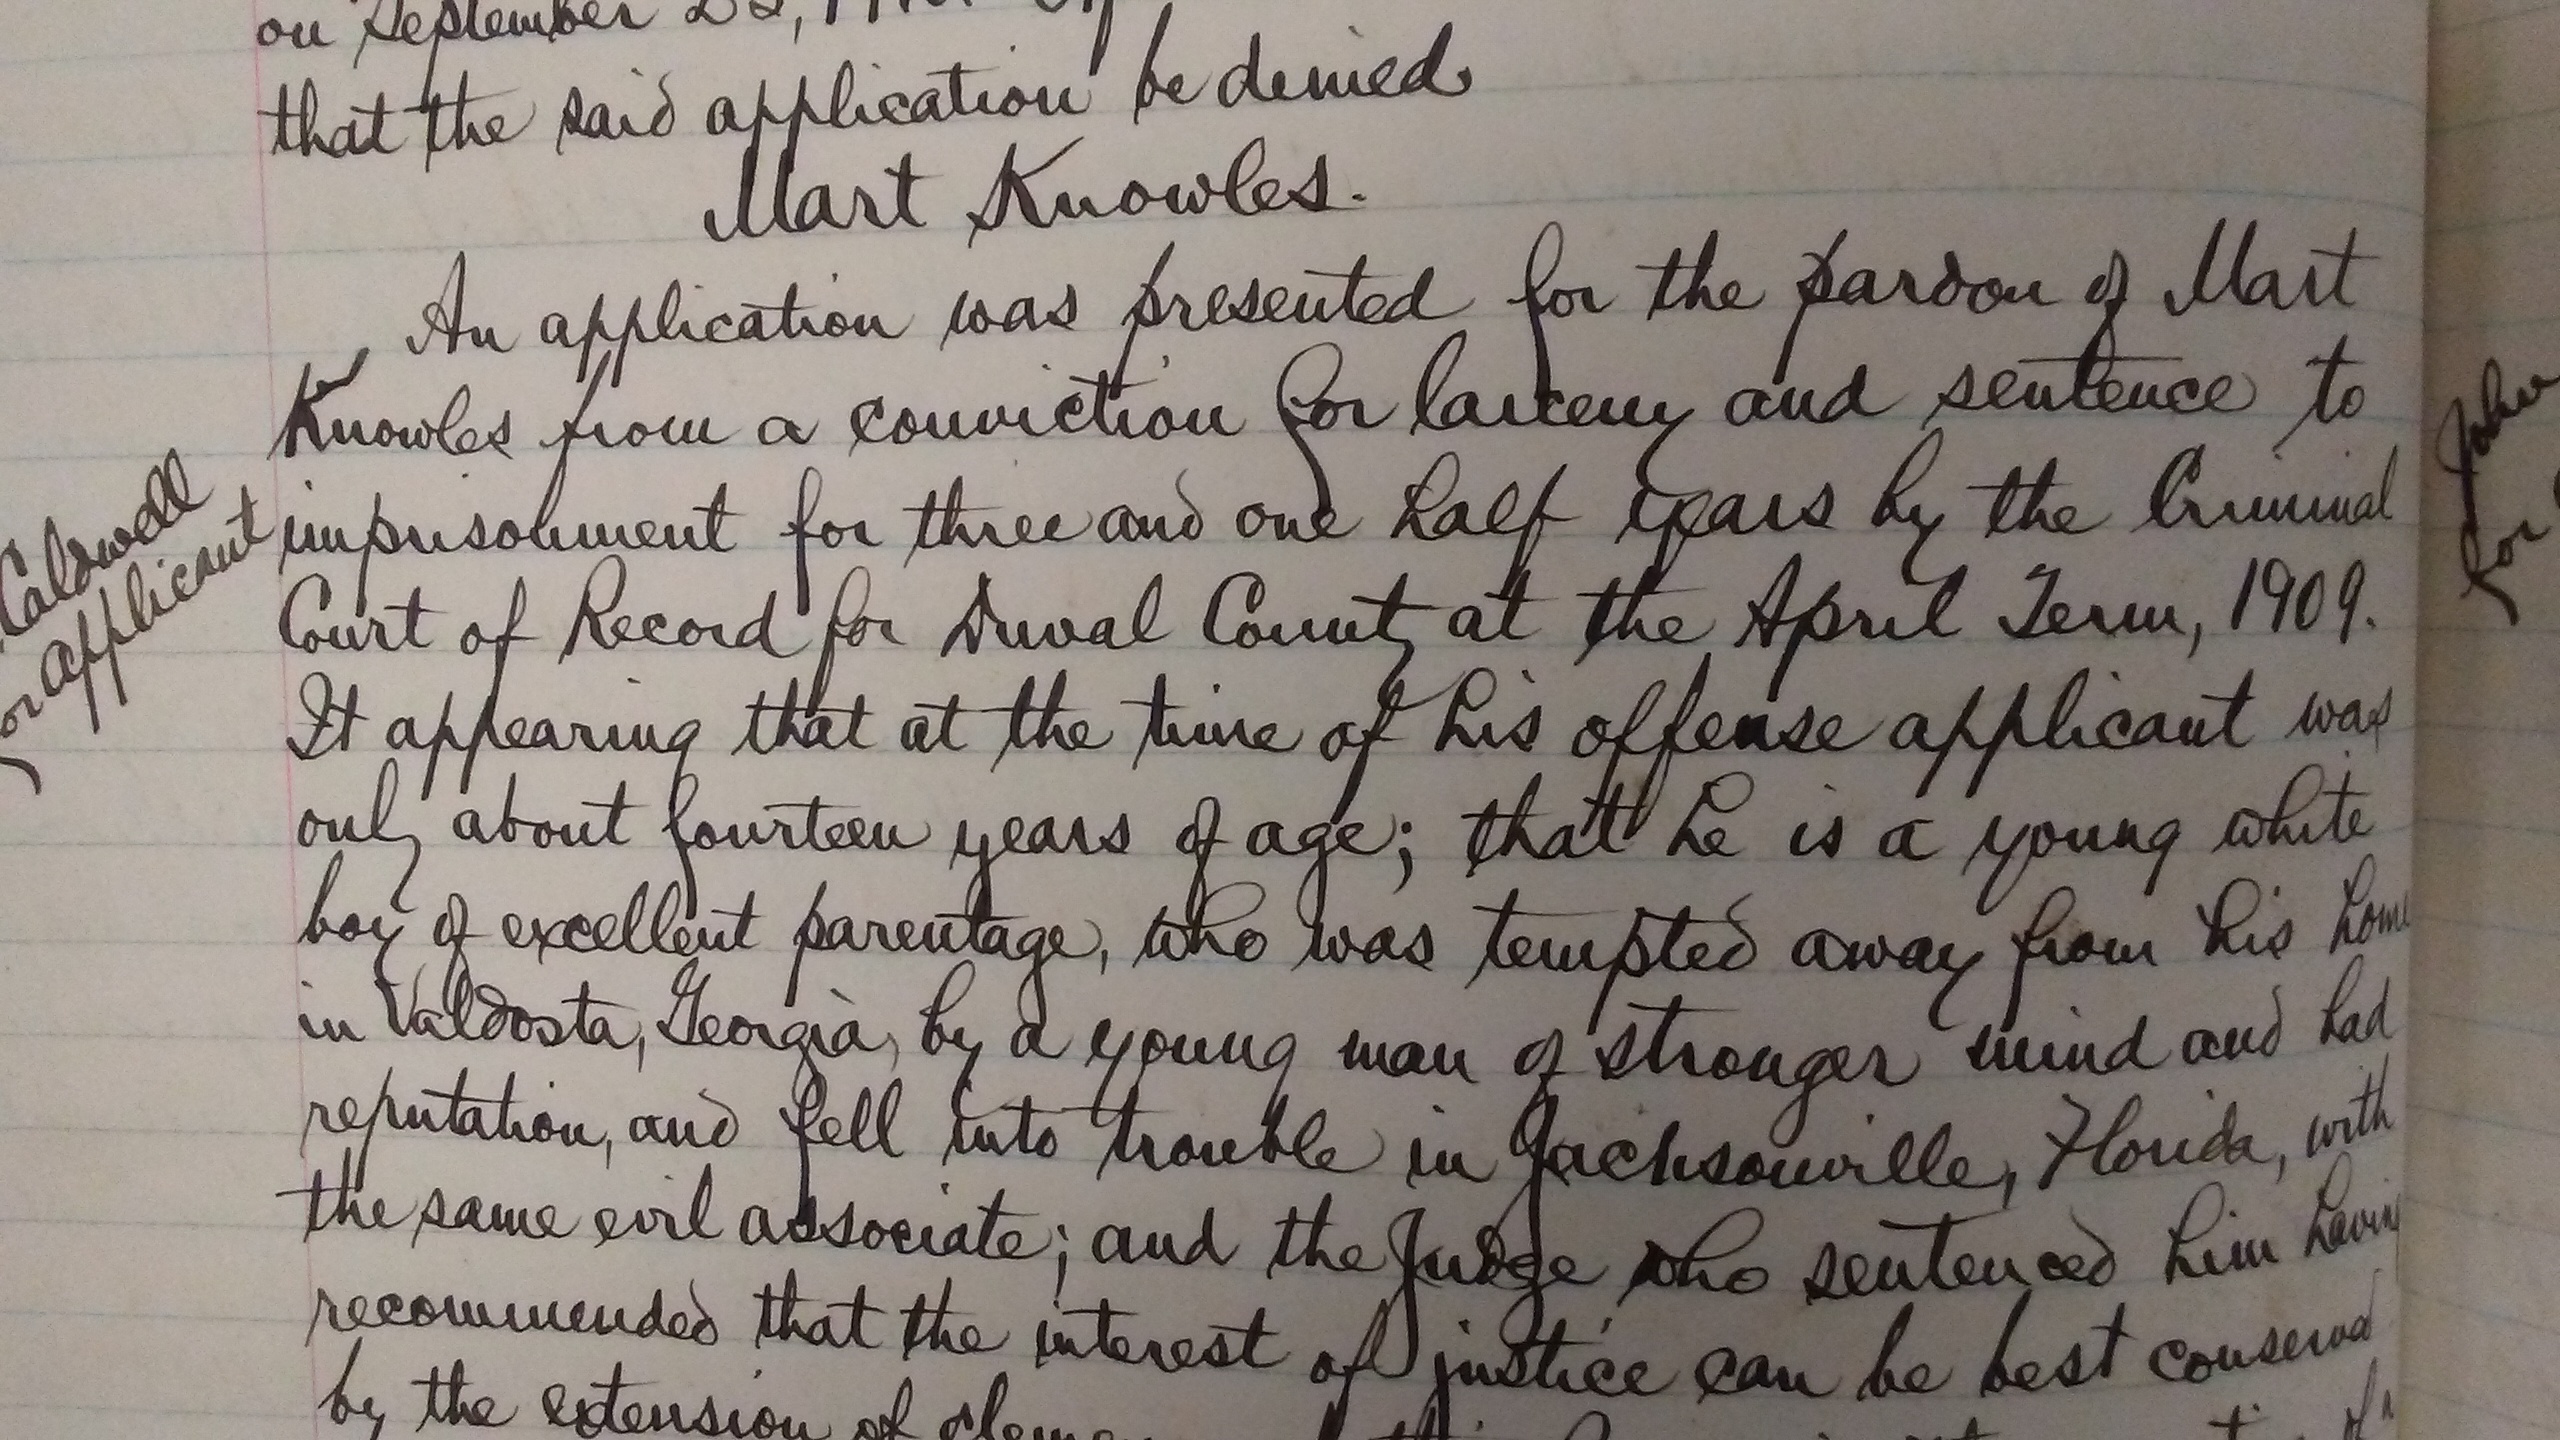 on September 20,
that the said application be denied.
Mart Knowles.
An application was presented for the pardon of Mart
Knowles from a conviction for larceny and sentence to
imprisonment for three and one half years by the Criminal
Court of Record for Duval County at the April Term, 1909.
It appearing that at the time of his offense applicant was
only about fourteen years of age; that he is a young white
boy of excellent parentage, who was tempted away from his home
in Valdosta, Georgia, by a young man of stronger mind and bad
reputation, and fell into trouble in Jacksonville, Florida, with
the same evil associate; and the Judge who sentenced him having
recommended that the interest of justice can be best conserved
by the extension of clemency
Caldwell
for applicant
John
for